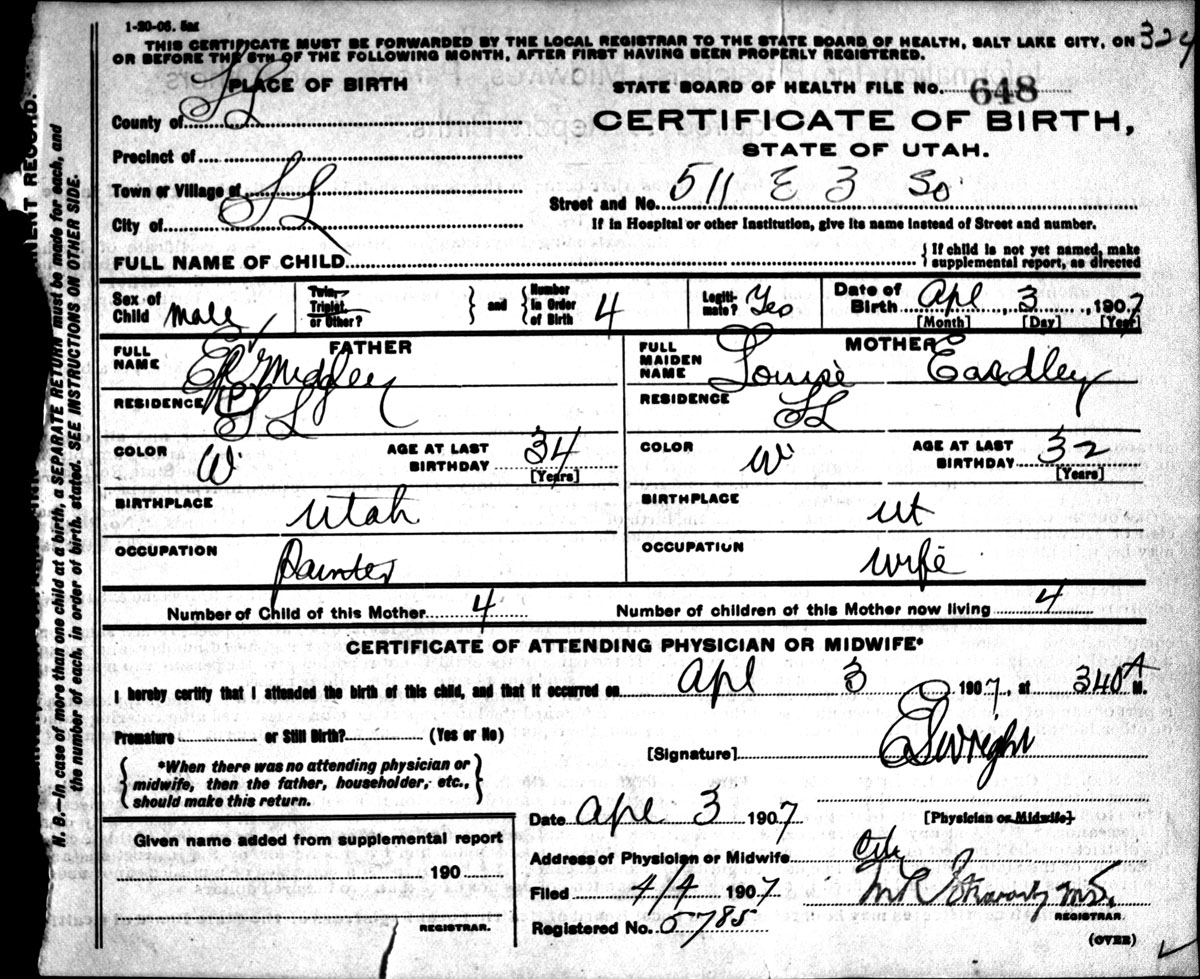 1-20-06. 5M
THIS CERTIFICATE MUST BE FORWARDED BY THE LOCAL REGISTRAR TO THE STATE BOARD OF HEALTH, SALT LAKE CITY, ON 324
OR BEFORE THE 5TH OF THE FOLLOWING MONTH, AFTER FIRST HAVING BEEN PROPERLY REGISTERED.
PLACE OF BIRTH
STATE BOARD OF HEALTH FILE NO. 648
County of SL
CERTIFICATE OF BIRTH,
Precinct of
STATE OF UTAH.
Town or Village of
Street and No. 511 E 3 So
City of SL
If in Hospital or other Institution, give its name instead of Street and number.
FULL NAME OF CHILD
{ If child is not yet named, make
supplemental report, as directed
Sex of Child Male
Twin, Triplet, or Other? } and { Number in Order of Birth 4
Legitimate? Yes
Date of Birth Apl 3, 1907
[Month] [Day] [Year]
FATHER
MOTHER
FULL NAME Midgley
FULL MAIDEN NAME Louise Eardley
RESIDENCE SL
RESIDENCE SL
COLOR W
AGE AT LAST BIRTHDAY 34
[Years]
COLOR W
AGE AT LAST BIRTHDAY 32
[Years]
BIRTHPLACE Utah
BIRTHPLACE Ut
OCCUPATION Painter
OCCUPATION Wife
Number of Child of this Mother 4
Number of children of this Mother now living 4
CERTIFICATE OF ATTENDING PHYSICIAN OR MIDWIFE*
I hereby certify that I attended the birth of this child, and that it occurred on Apl 3 1907, at 340 A M.
Premature or Still Birth? (Yes or No)
[Signature] Wright
{ *When there was no attending physician or
midwife, then the father, householder, etc.,
should make this return. }
Date Apl 3 1907
[Physician or Midwife]
Given name added from supplemental report
190
REGISTRAR.
Address of Physician or Midwife City
Filed 4/4 1907
REGISTRAR
Registered No. 5785
(OVER)
N. B.—In case of more than one child at a birth, a SEPARATE RETURN must be made for each, and
the number of each, in order of birth, stated. SEE INSTRUCTIONS ON OTHER SIDE.
RECORD.